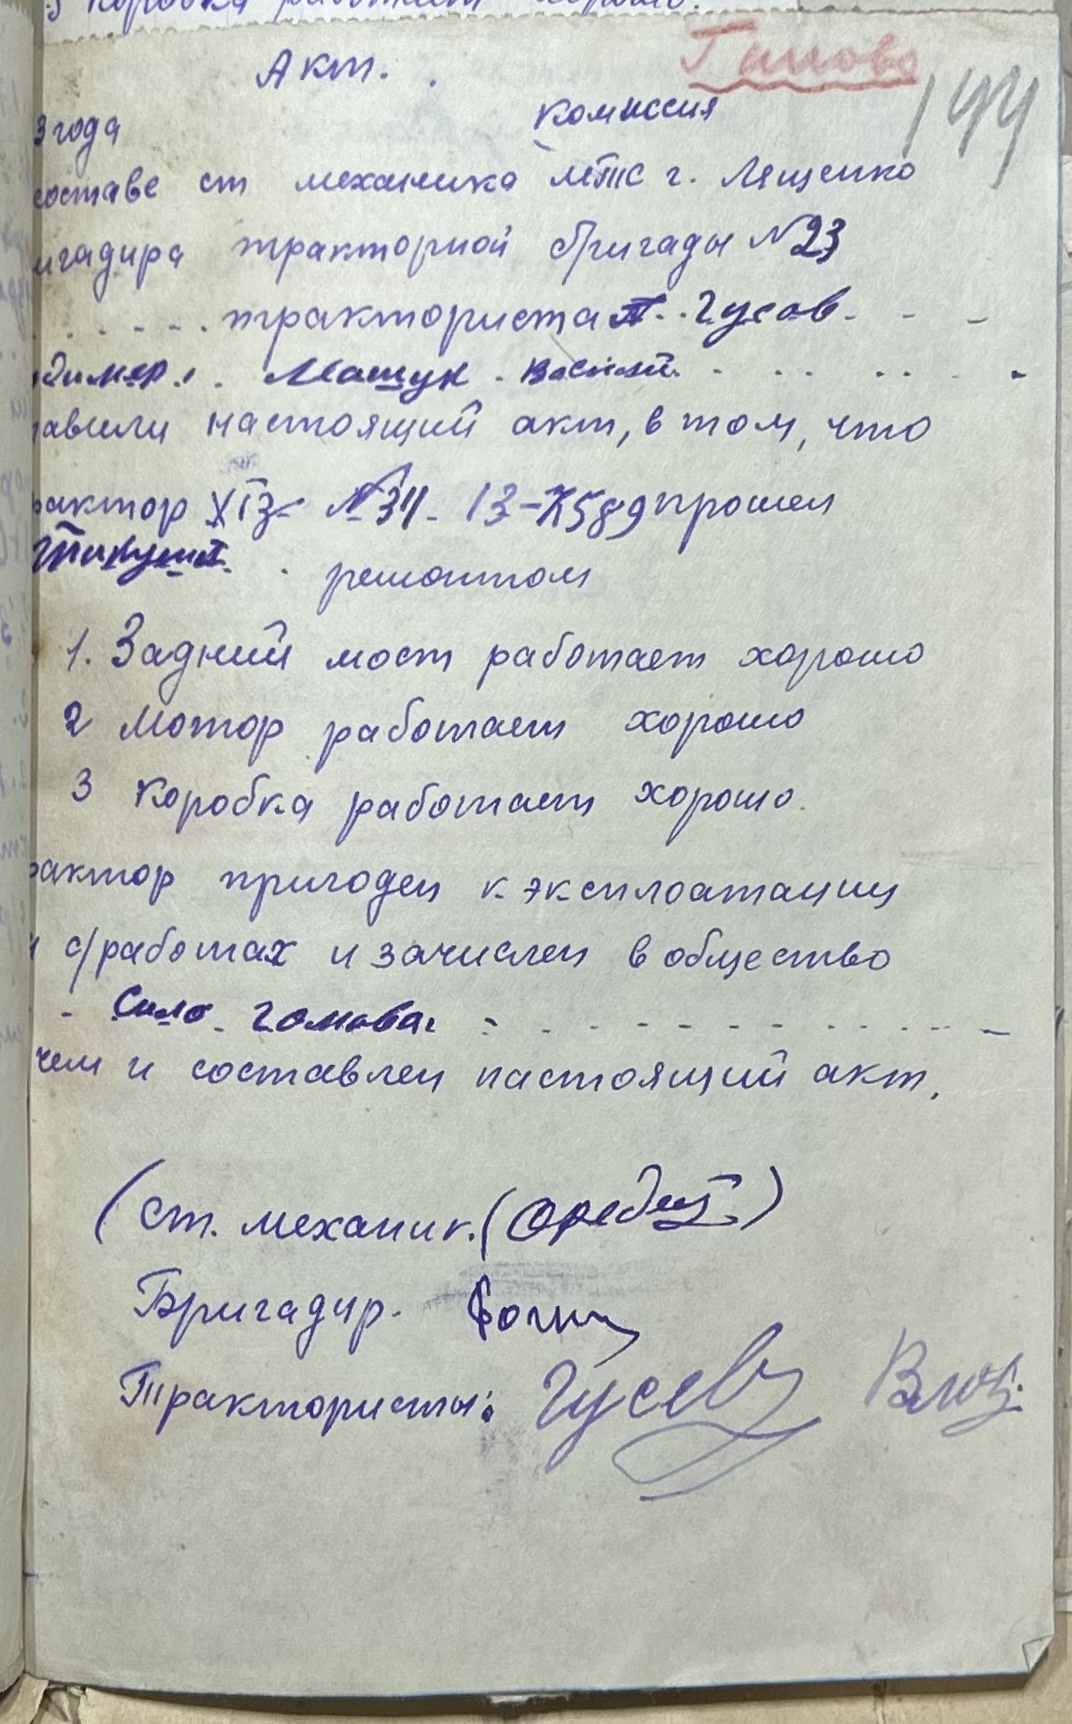 3 коробка работает хорошо.
Ганово
Акт.
144
3 года комиссия
составе ст механика МТС г. Лященко
игадира тракторной бригады №23
тракториста П. Гусов
димер. Машук Васили
тавили настоящий акт, в том, что
рактор ХТЗ №34 13-7589 прошел
ремонтом
1. Задний мост работает хорошо
2 Мотор работает хорошо
3 Коробка работает хорошо.
рактор пригоден к эксплоатации
с/работах и зачислен в общество
Сило гомова
чем и составлен настоящий акт.
(Ст. механик. (
Бригадир.
Трактористы: Гусев